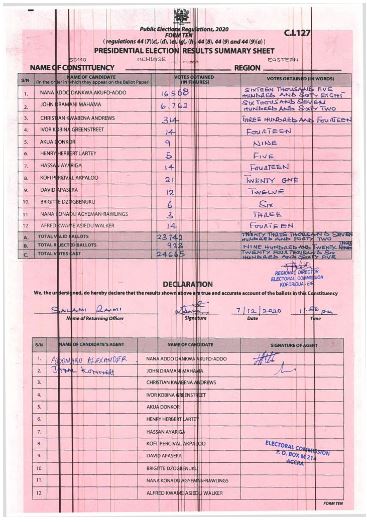 Public Elections Regulations, 2020
FORM TEN
C.I.127
PRESIDENTIAL ELECTION RESULTS SUMMARY SHEET
EASTERN
NAME OF CONSTITUENCY REGION
S/N NAME OF CANDIDATE VOTES OBTAINED VOTES OBTAINED (IN WORDS)
(In the order in which they appear on the Ballot Paper) (IN FIGURES)
1. NANA ADDO DANKWA AKUFO-ADDO 16568 SIXTEEN THOUSAND FIVE HUNDRED AND SIXTY EIGHT
2. JOHN DRAMANI MAHAMA 6,762 SIX THOUSAND SEVEN HUNDRED AND SIXTY TWO
3. CHRISTIAN KWABENA ANDREWS 314 THREE HUNDRED AND FOURTEEN
4. IVOR KOBINA GREENSTREET 14 FOURTEEN
5. AKUA DONKOR 9 NINE
6. HENRY HERBERT LARTEY 5 FIVE
7. HASSAN AYARIGA 14 FOURTEEN
8. KOFI PERCIVAL AKPALOO 21 TWENTY ONE
9. DAVID APASERA 12 TWELVE
10. BRIGITTE DZOGBENUKU 6 SIX
11. NANA KONADU AGYEMAN-RAWLINGS 3 THREE
12. ALFRED KWAME ASIEDU WALKER 14 FOURTEEN
A. TOTAL VALID BALLOTS 23742 TWENTY THREE THOUSAND SEVEN HUNDRED AND FORTY TWO
B. TOTAL REJECTED BALLOTS 923 NINE HUNDRED AND TWENTY THREE
C. TOTAL VOTES CAST 24665 TWENTY FOUR THOUSAND SIX HUNDRED AND SIXTY FIVE
REGIONAL DIRECTOR
ELECTORAL COMMISSION
KOFORIDUA-E/R
DECLARATION
We, the undersigned, do hereby declare that the results shown above is a true and accurate account of the ballots in this Constituency
7/12/2020
Name of Returning Officer Signature Date Time
S/N NAME OF CANDIDATE'S AGENT NAME OF CANDIDATE SIGNATURE OF AGENT
1. ALEXANDER NANA ADDO DANKWA AKUFO-ADDO
2. JOHN DRAMANI MAHAMA
3. CHRISTIAN KWABENA ANDREWS
4. IVOR KOBINA GREENSTREET
5. AKUA DONKOR
6. HENRY HERBERT LARTEY
7. HASSAN AYARIGA
8. KOFI PERCIVAL AKPALOO
9. DAVID APASERA
10. BRIGITTE DZOGBENUKU
11. NANA KONADU AGYEMAN-RAWLINGS
12. ALFRED KWAME ASIEDU WALKER
ELECTORAL COMMISSION
P. O. BOX M 214
ACCRA
FORM TEN